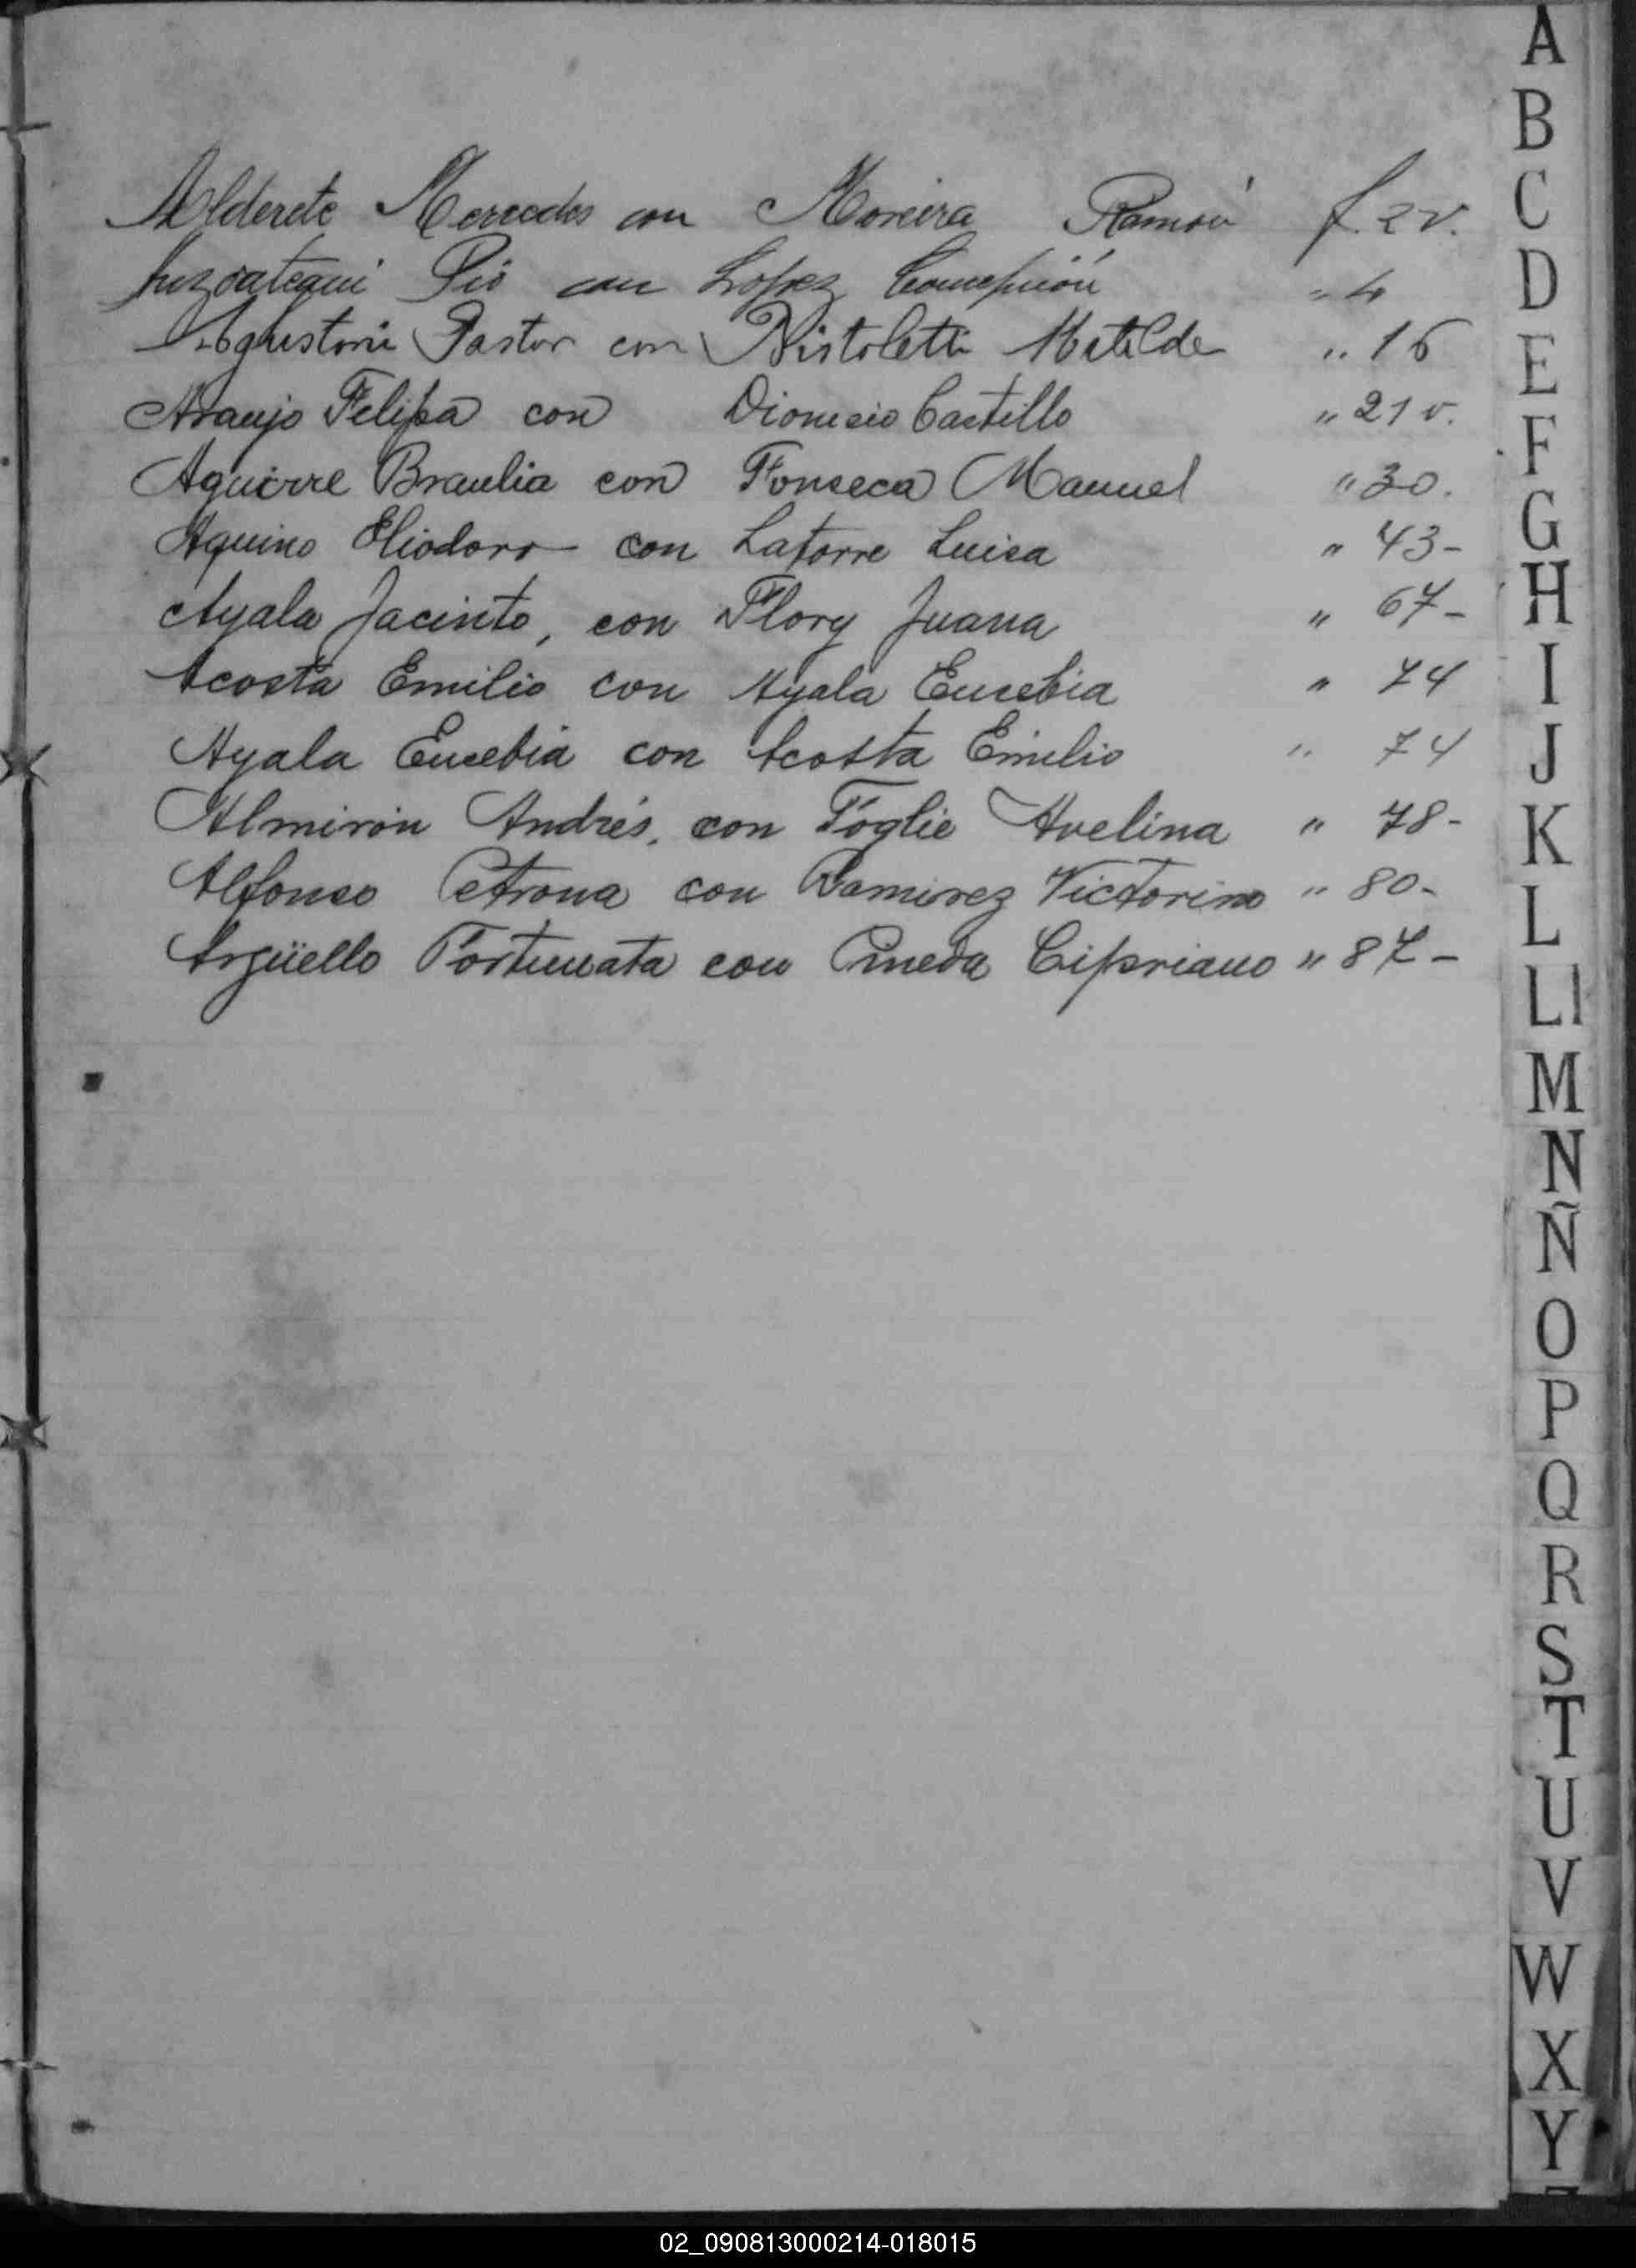 Alderete Mercedes con Moreira Ramón f. 2 v.
Pio con Lopez Concepción " 4
Agustoni Pastor con Pistoletti Matilde " 16
Araujo Felipa con Dionicio Castillo " 21 v.
Aguirre Braulia con Fonseca Manuel " 30.
Aquino Eliodoro con Latorre Luisa " 43-
Ayala Jacinto, con Flory Juana " 67-
Acosta Emilio con Ayala Eusebia " 74
Ayala Eusebia con Acosta Emilio " 74
Almirón Andrés, con Foglie Avelina " 78-
Alfonso Petrona con Ramirez Victorino " 80-
Argüello Fortunata con Pineda Cipriano " 87-
A
B
C
D
E
F
G
H
I
J
K
L
Ll
M
N
Ñ
O
P
Q
R
S
T
U
V
W
X
Y
02_090813000214-018015